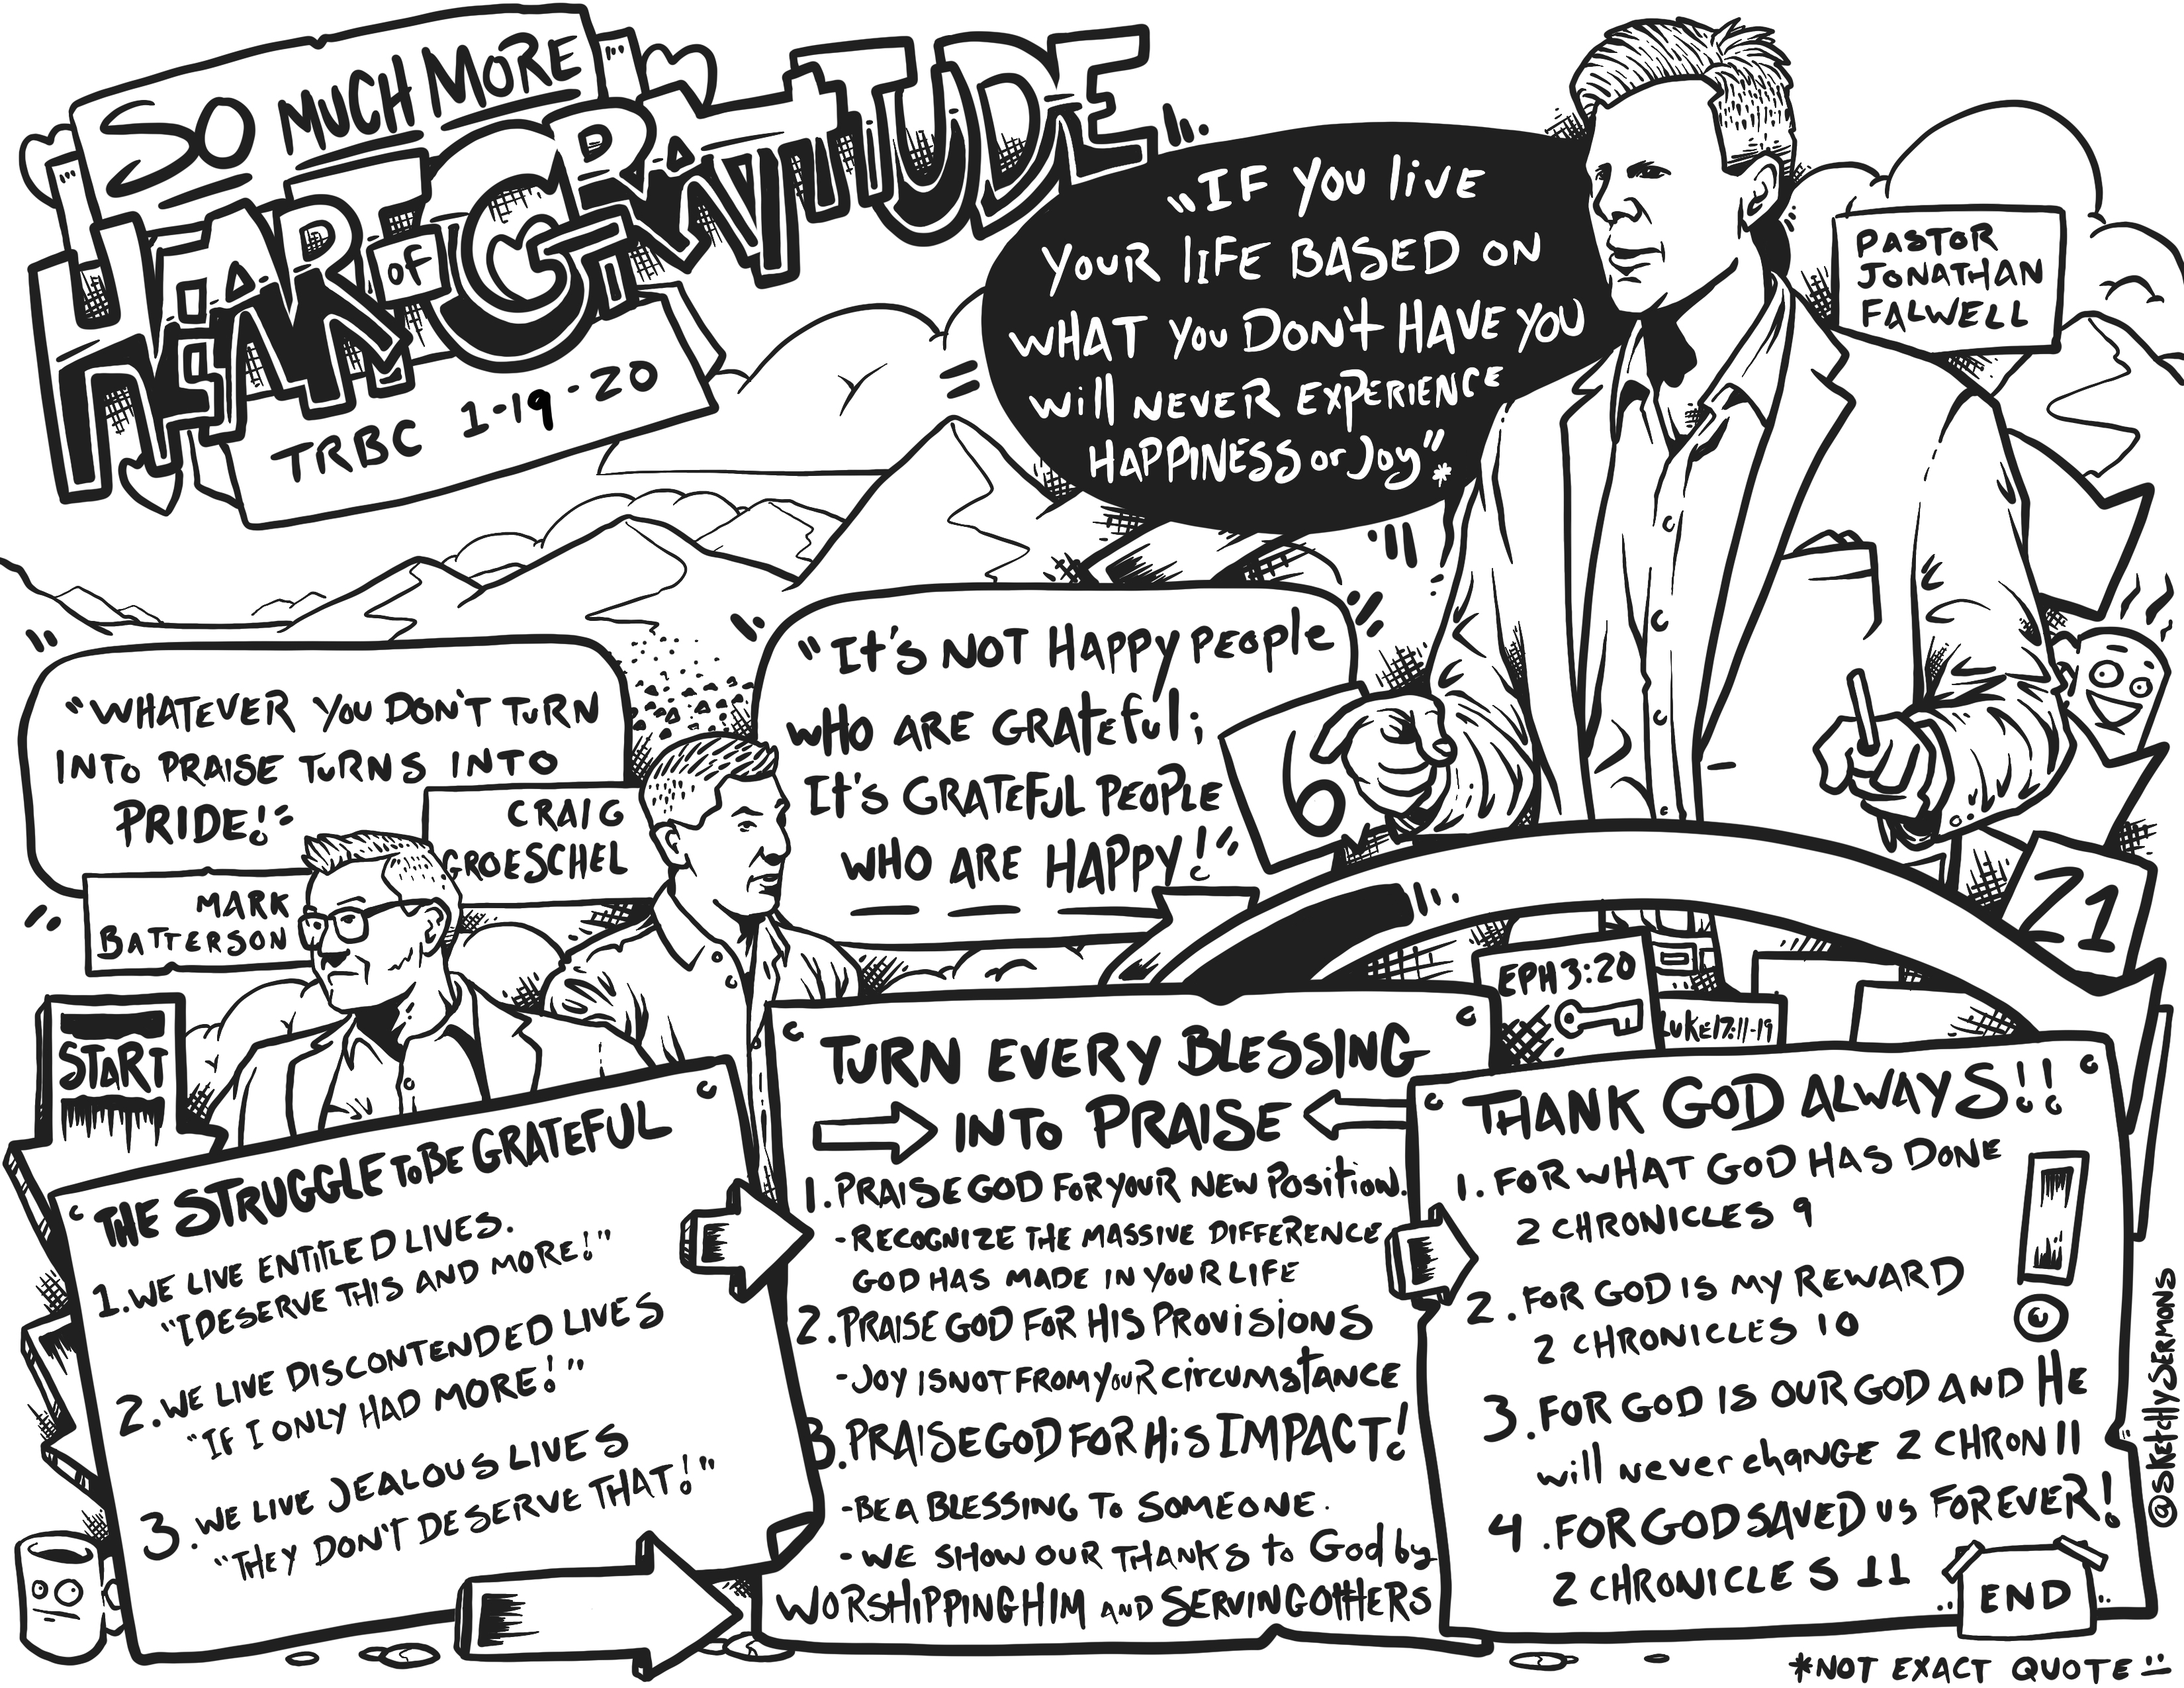 SO MUCH MORE
HEART OF GRATITUDE
TRBC 1-19-20
"IF YOU LIVE
YOUR LIFE BASED ON
WHAT YOU DON'T HAVE YOU
WILL NEVER EXPERIENCE
HAPPINESS or Joy"*
PASTOR
JONATHAN
FALWELL
"WHATEVER YOU DON'T TURN
INTO PRAISE TURNS INTO
PRIDE!"
MARK
BATTERSON
CRAIG
GROESCHEL
"It's NOT HAPPY PEOPLE
WHO ARE GRATEFUL;
It's GRATEFUL PEOPLE
WHO ARE HAPPY!"
6
21
EPH 3:20
Luke 17:11-19
START
THE STRUGGLE TO BE GRATEFUL
1. WE LIVE ENTITLED LIVES.
"I DESERVE THIS AND MORE!"
2. WE LIVE DISCONTENDED LIVES
"IF I ONLY HAD MORE!"
3. WE LIVE JEALOUS LIVES
"THEY DON'T DESERVE THAT!"
TURN EVERY BLESSING
INTO PRAISE
1. PRAISE GOD FOR YOUR NEW POSITION.
- RECOGNIZE THE MASSIVE DIFFERENCE
GOD HAS MADE IN YOUR LIFE
2. PRAISE GOD FOR HIS PROVISIONS
- JOY IS NOT FROM YOUR CIRCUMSTANCE
3. PRAISE GOD FOR HIS IMPACT!
- BE A BLESSING TO SOMEONE.
- WE SHOW OUR THANKS to God by
WORSHIPPING HIM AND SERVING OTHERS
THANK GOD ALWAYS!!
1. FOR WHAT GOD HAS DONE
2 CHRONICLES 9
2. FOR GOD IS MY REWARD
2 CHRONICLES 10
3. FOR GOD IS OUR GOD AND HE
will never change 2 CHRON 11
4. FOR GOD SAVED US FOREVER!
2 CHRONICLES 11
END
@SKETCHYSERMONS
*NOT EXACT QUOTE